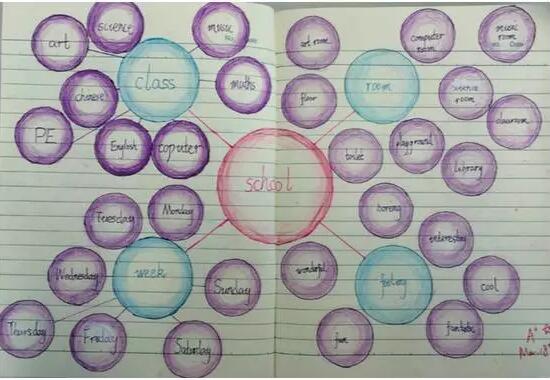 science
music
art
class
maths
chinese
PE
English
coputer
school
art room
computer room
music room
room
floor
science room
classroom
toilet
playground
library
Tuesday
Monday
week
Wednesday
Sunday
Thursday
Friday
Saturday
boring
interesting
wonderful
feeling
cool
fun
fantastic